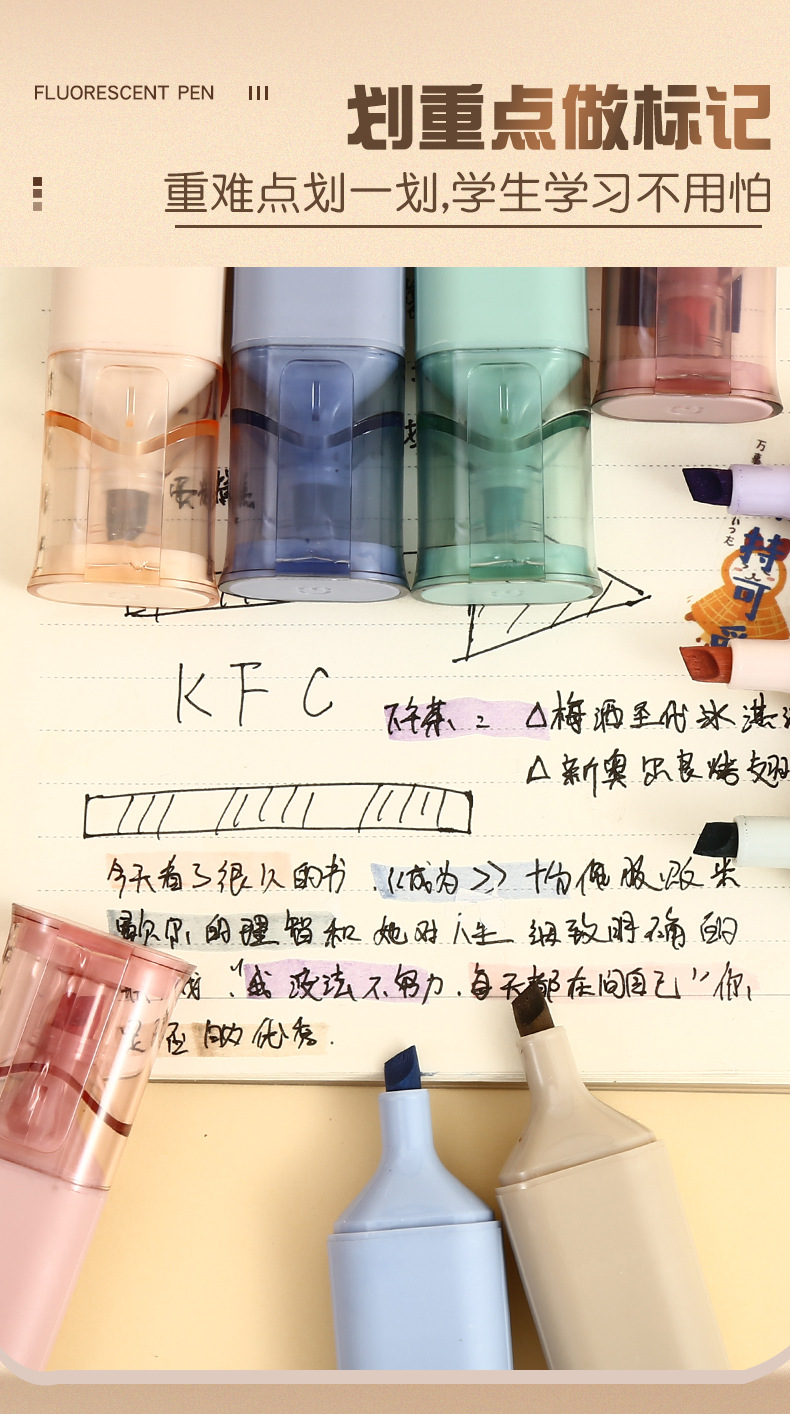 FLUORESCENT PEN
划重点做标记
重难点划一划,学生学习不用怕
万
いった
持
可
KFC
下午茶:△梅酒圣代冰淇
△新奥尔良烤翅
今天看了很久的书.《成为》十均佩服
的理智和她对人生细致明确的
"我没法不努力.每天都在问自己"你,
的优秀.